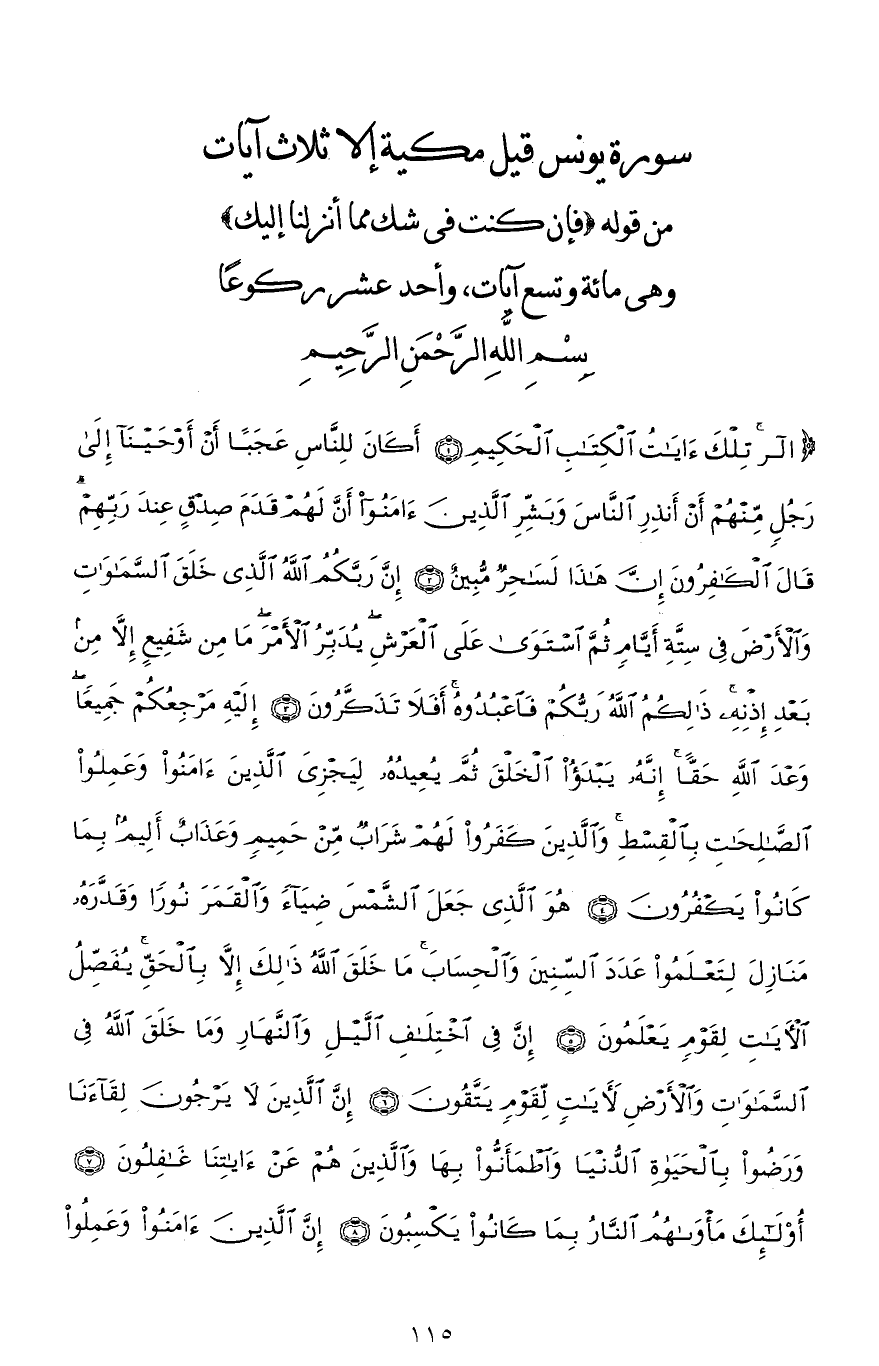 سورة يونس قيل مكية إلا ثلاث آيات
من قوله ﴿فإن كنت فى شك مما أنزلنا إليك﴾
وهى مائة وتسع آيات، وأحد عشر ركوعًا
بِسْمِ اللَّهِ الرَّحْمَنِ الرَّحِيمِ
﴿الٓرۚ تِلْكَ ءَايَٰتُ ٱلْكِتَٰبِ ٱلْحَكِيمِ ۝١ أَكَانَ لِلنَّاسِ عَجَبًا أَنْ أَوْحَيْنَآ إِلَىٰ
رَجُلٍ مِّنْهُمْ أَنْ أَنذِرِ ٱلنَّاسَ وَبَشِّرِ ٱلَّذِينَ ءَامَنُوٓاْ أَنَّ لَهُمْ قَدَمَ صِدْقٍ عِندَ رَبِّهِمْۗ
قَالَ ٱلْكَٰفِرُونَ إِنَّ هَٰذَا لَسَٰحِرٌ مُّبِينٌ ۝٢ إِنَّ رَبَّكُمُ ٱللَّهُ ٱلَّذِى خَلَقَ ٱلسَّمَٰوَٰتِ
وَٱلْأَرْضَ فِى سِتَّةِ أَيَّامٍ ثُمَّ ٱسْتَوَىٰ عَلَى ٱلْعَرْشِۖ يُدَبِّرُ ٱلْأَمْرَۖ مَا مِن شَفِيعٍ إِلَّا مِنۢ
بَعْدِ إِذْنِهِۦۚ ذَٰلِكُمُ ٱللَّهُ رَبُّكُمْ فَٱعْبُدُوهُۚ أَفَلَا تَذَكَّرُونَ ۝٣ إِلَيْهِ مَرْجِعُكُمْ جَمِيعًاۖ
وَعْدَ ٱللَّهِ حَقًّاۚ إِنَّهُۥ يَبْدَؤُاْ ٱلْخَلْقَ ثُمَّ يُعِيدُهُۥ لِيَجْزِىَ ٱلَّذِينَ ءَامَنُواْ وَعَمِلُواْ
ٱلصَّٰلِحَٰتِ بِٱلْقِسْطِۚ وَٱلَّذِينَ كَفَرُواْ لَهُمْ شَرَابٌ مِّنْ حَمِيمٍ وَعَذَابٌ أَلِيمٌۢ بِمَا
كَانُواْ يَكْفُرُونَ ۝٤ هُوَ ٱلَّذِى جَعَلَ ٱلشَّمْسَ ضِيَآءً وَٱلْقَمَرَ نُورًا وَقَدَّرَهُۥ
مَنَازِلَ لِتَعْلَمُواْ عَدَدَ ٱلسِّنِينَ وَٱلْحِسَابَۚ مَا خَلَقَ ٱللَّهُ ذَٰلِكَ إِلَّا بِٱلْحَقِّۚ يُفَصِّلُ
ٱلْأٓيَٰتِ لِقَوْمٍ يَعْلَمُونَ ۝٥ إِنَّ فِى ٱخْتِلَٰفِ ٱلَّيْلِ وَٱلنَّهَارِ وَمَا خَلَقَ ٱللَّهُ فِى
ٱلسَّمَٰوَٰتِ وَٱلْأَرْضِ لَأٓيَٰتٍ لِّقَوْمٍ يَتَّقُونَ ۝٦ إِنَّ ٱلَّذِينَ لَا يَرْجُونَ لِقَآءَنَا
وَرَضُواْ بِٱلْحَيَوٰةِ ٱلدُّنْيَا وَٱطْمَأَنُّواْ بِهَا وَٱلَّذِينَ هُمْ عَنْ ءَايَٰتِنَا غَٰفِلُونَ ۝٧
أُوْلَٰٓئِكَ مَأْوَىٰهُمُ ٱلنَّارُ بِمَا كَانُواْ يَكْسِبُونَ ۝٨ إِنَّ ٱلَّذِينَ ءَامَنُواْ وَعَمِلُواْ
١١٥